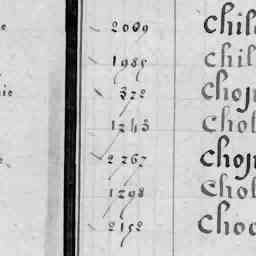 2009 Chil
1985 Chil
322 Choj
1243 Chol
2267 Choj
1298 Chol
2152 Choc